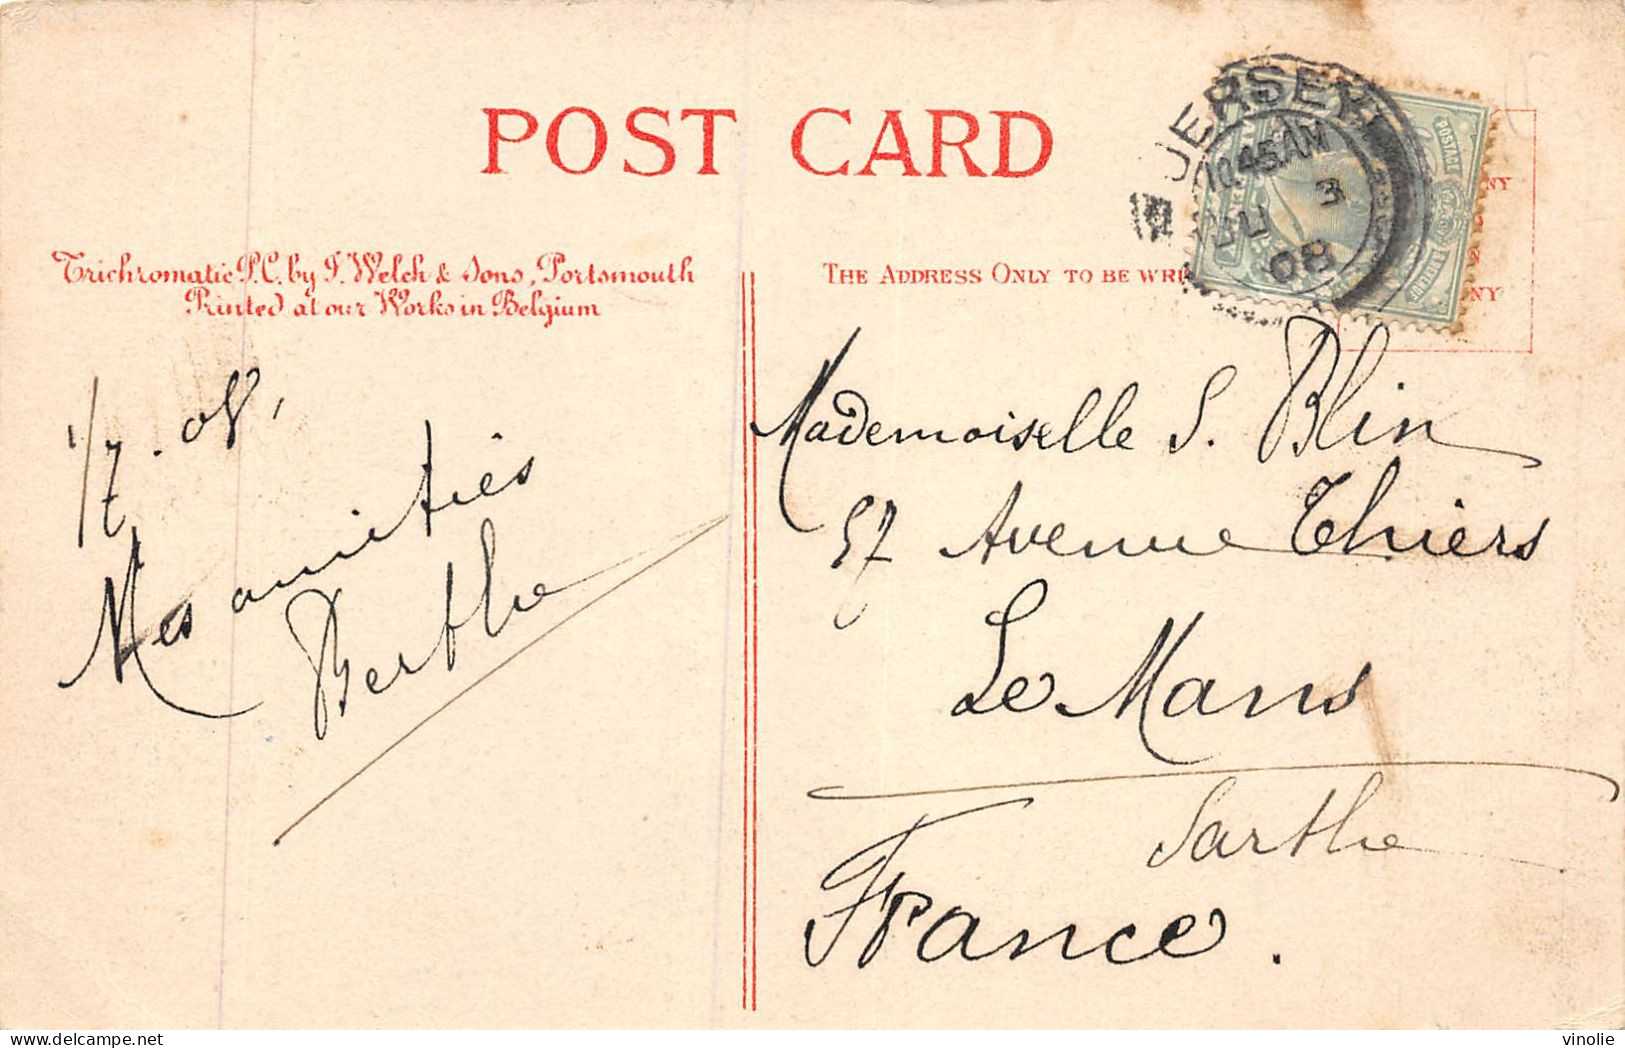 POST CARD
Trichromatic P.C. by F. Welch & Sons, Portsmouth
Printed at our Works in Belgium
THE ADDRESS ONLY TO BE WRI
NY
N
NY
JERSEY
10.45 AM
JU 3
08
POSTAGE
1/7.08,
Mes amitiés
Berthe
Mademoiselle S. Blin
57 Avenue Thiers
Le Mans
Sarthe
France.
delcampe.net
vinolie